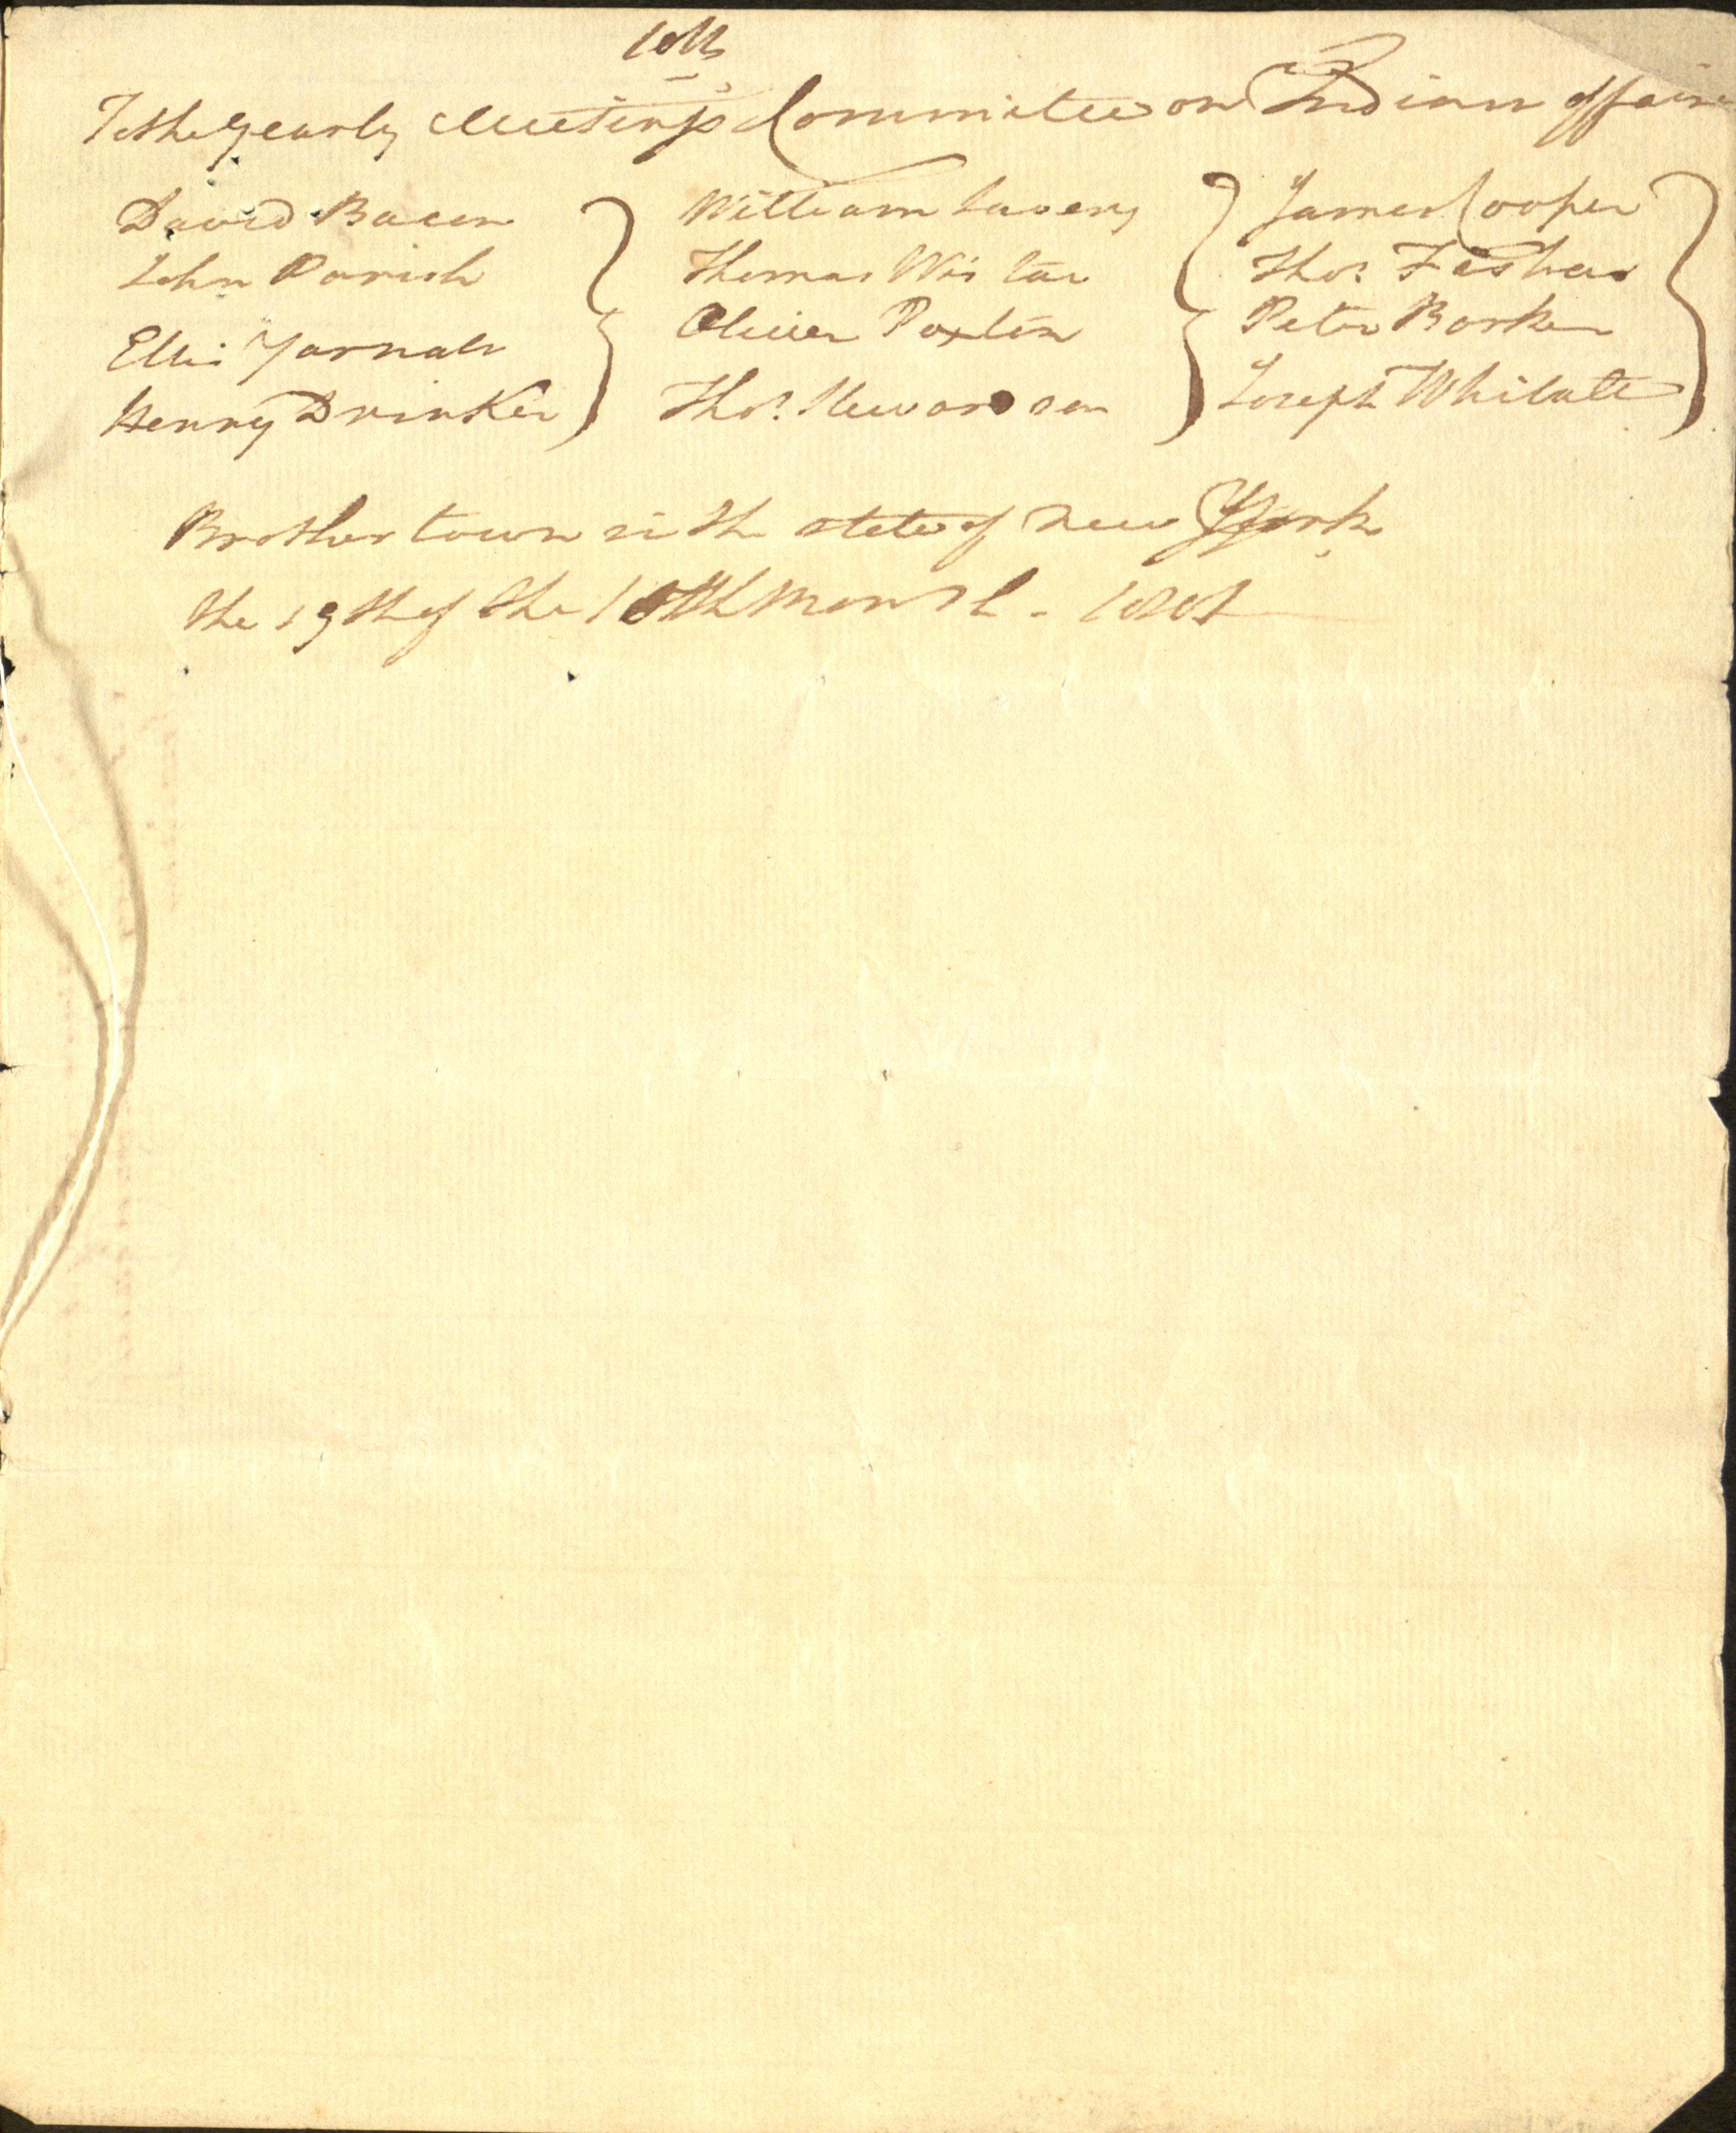 To the Yearly Meetings Committee on Indian affairs
David Bacon
John Parish
Ellis Yarnall
Henry Drinker
William Savery
Thomas Wistar
Oliver Paxton
Thos. Stewardson
James Cooper
Thos. Fisher
Peter Barker
Joseph Whitall
Brothertown in the state of new York
the 19th of the 10th month -